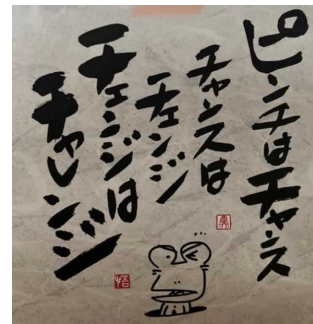 ピンチはチャンス
チャンスは
チェンジ
チェンジは
チャレンジ